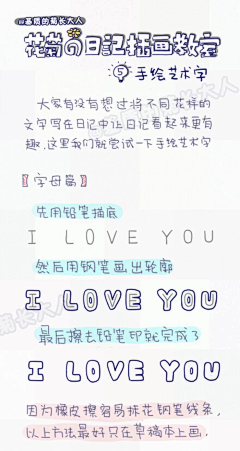 @基质的菊长大人
花菊の日記插画教室
⑤手绘艺术字
大家有没有想过将不同花样的
文字写在日记中让日记看起来更有
趣,这里我们就尝试一下手绘艺术字
【字母篇】
先用铅笔描底
I LOVE YOU
然后用钢笔画出轮廓
I LOVE YOU
最后擦去铅笔印就完成了
I LOVE YOU
因为橡皮擦容易抹花钢笔线条,
以上方法最好只在草稿本上画.